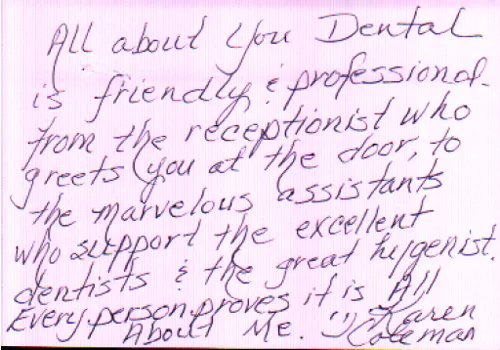 All about You Dental
is friendly & professional-
from the receptionist who
greets you at the door, to
the marvelous assistants
who support the excellent
dentists & the great hygenist.
Every person proves it is All
About Me. :) Karen
Coleman